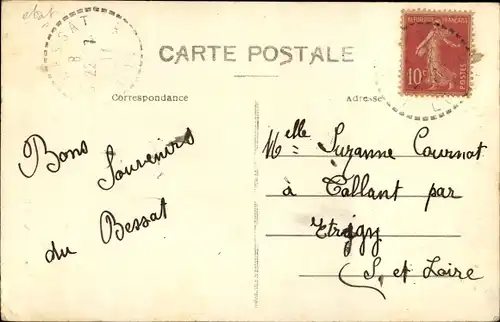 etat
BESSAT
8 - 7
22 11
CARTE POSTALE
REPUBLIQUE FRANÇAISE
10c
POSTES
Correspondance
Adresse
Bons
Souvenirs
du Bessat
Melle Suzanne Cournot
à Tallant par
Etrigy
S. et Loire